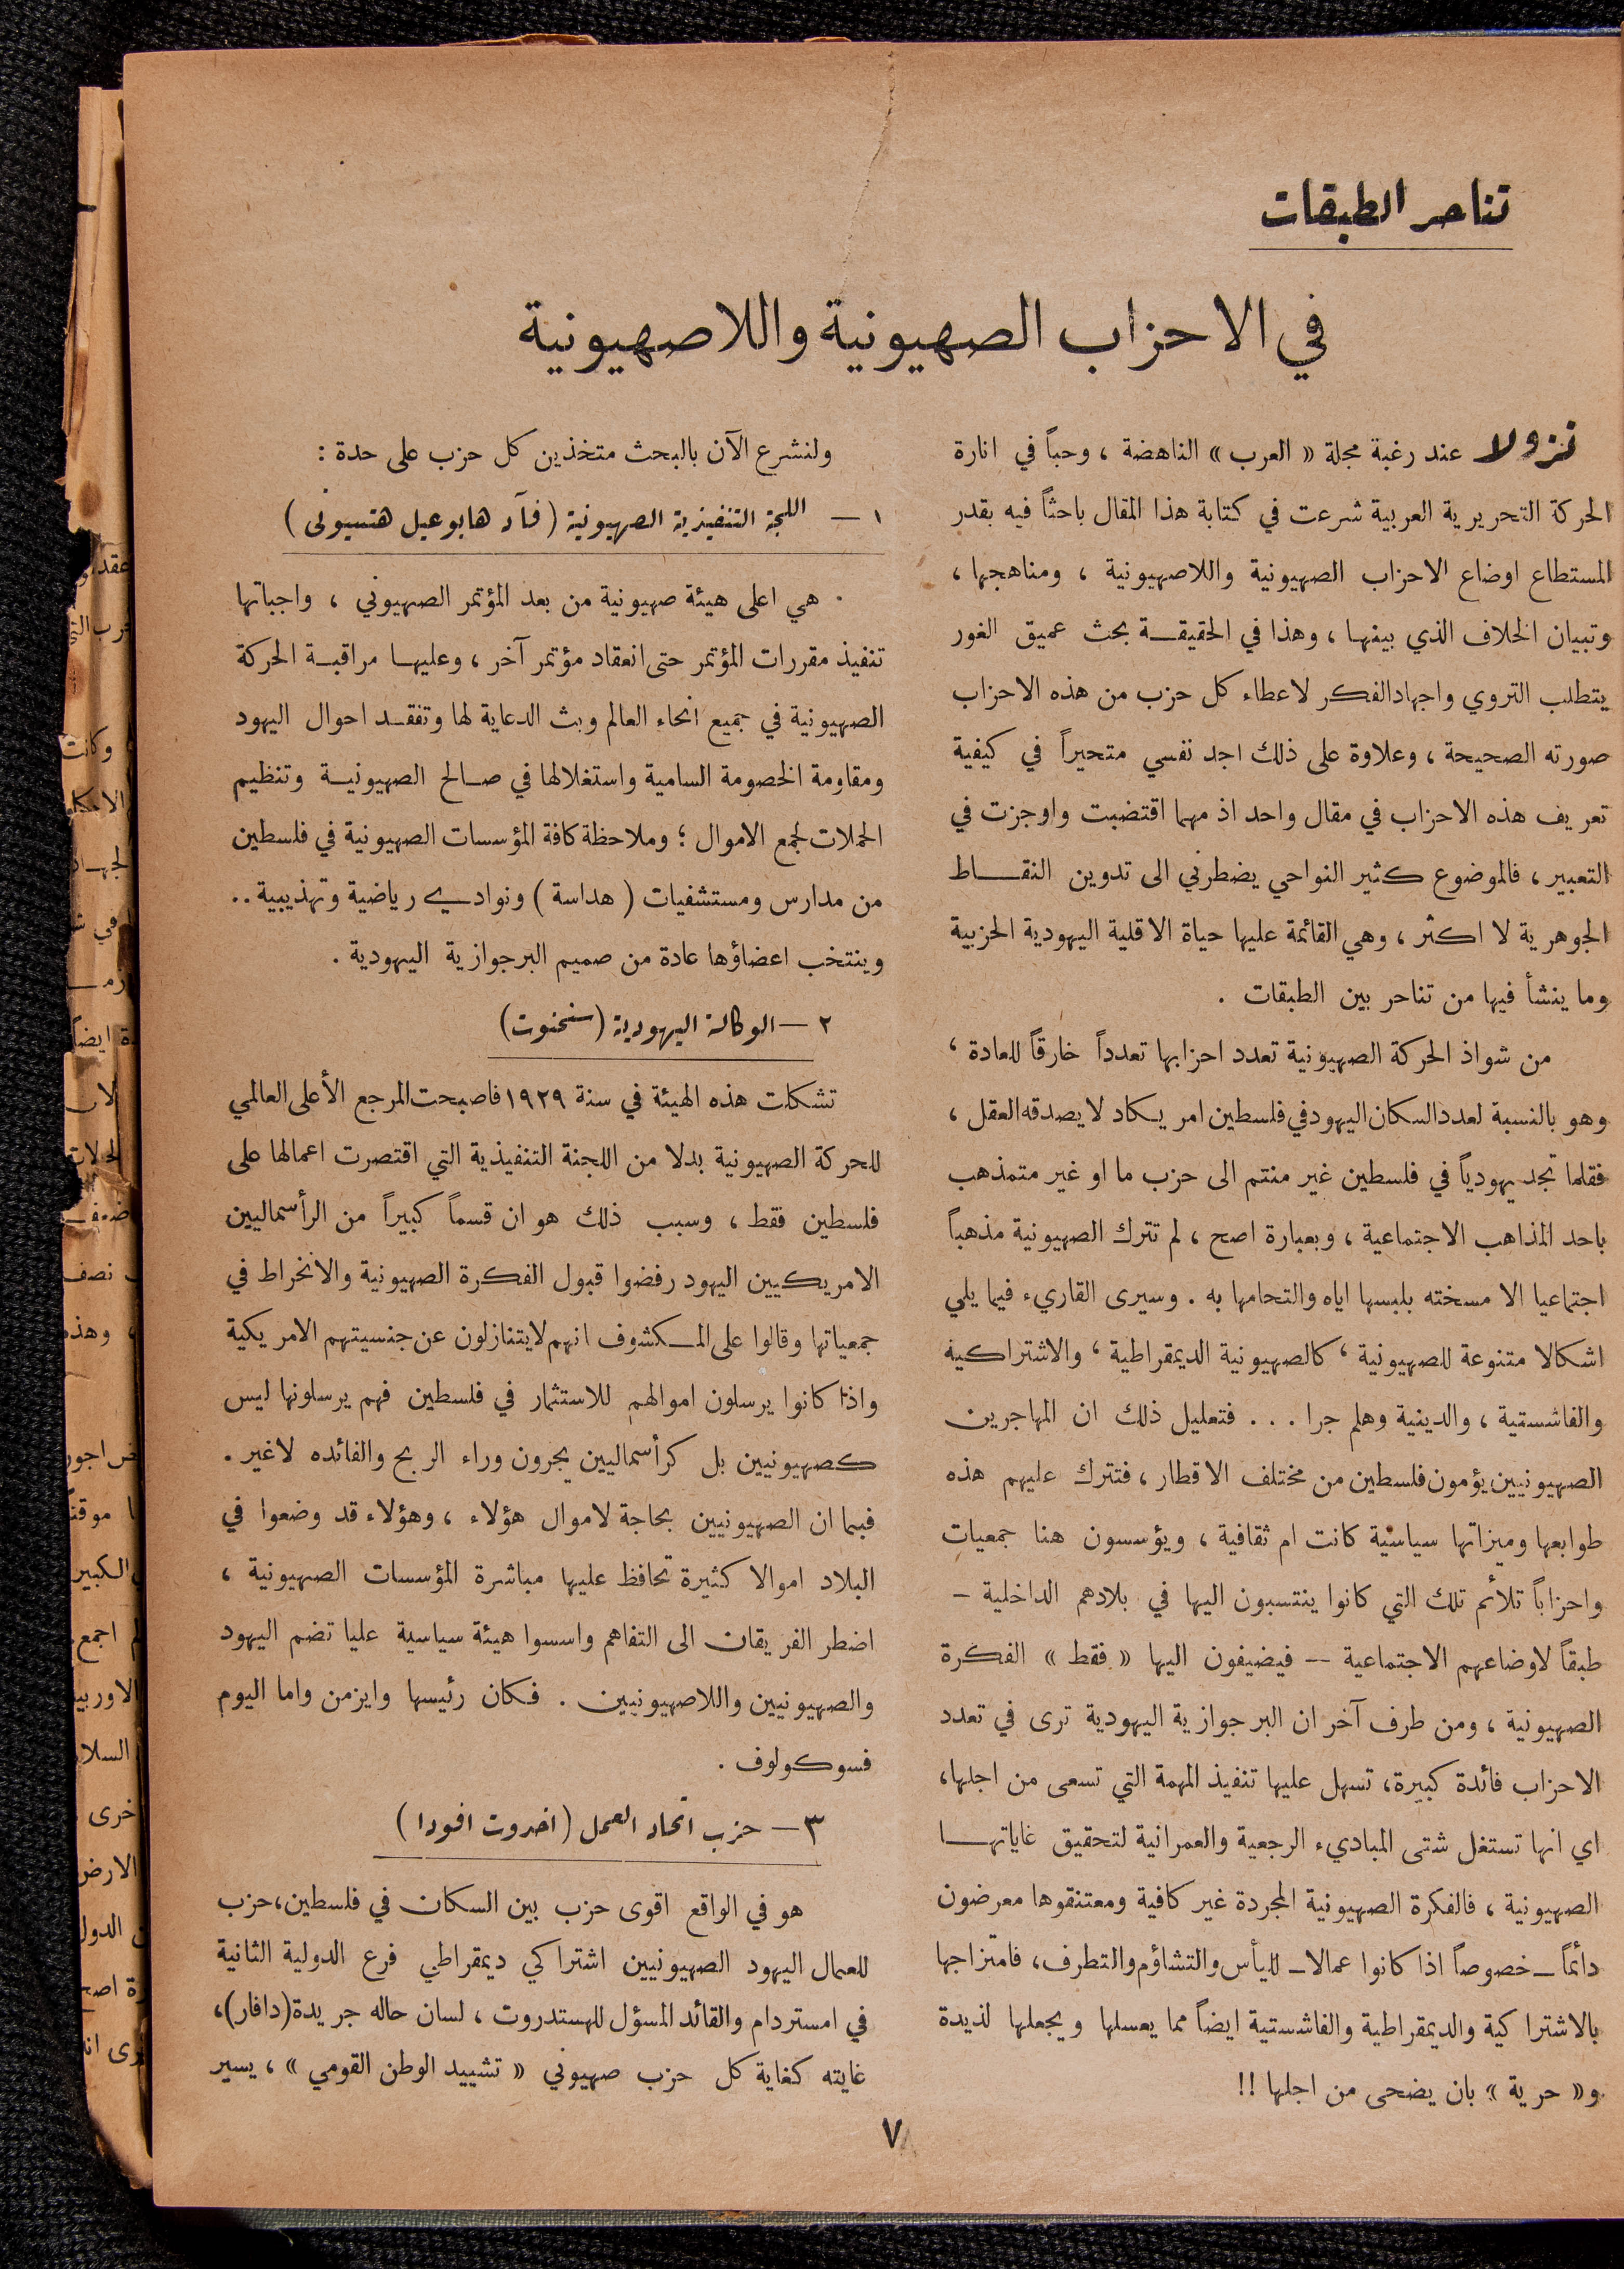 تناحر الطبقات
في الاحزاب الصهيونية واللاصهيونية
نزولا عند رغبة مجلة « العرب » الناهضة ، وحباً في انارة
الحركة التحريرية العربية شرعت في كتابة هذا المقال باحثاً فيه بقدر
المستطاع اوضاع الاحزاب الصهيونية واللاصهيونية ، ومناهجها ،
وتبيان الخلاف الذي بينها ، وهذا في الحقيقة بحث عميق الغور
يتطلب التروي واجهاد الفكر لاعطاء كل حزب من هذه الاحزاب
صورته الصحيحة ، وعلاوة على ذلك اجد نفسي متحيراً في كيفية
تعريف هذه الاحزاب في مقال واحد اذ مهما اقتضبت واوجزت في
التعبير ، فالموضوع كثير النواحي يضطرني الى تدوين النقاط
الجوهرية لا اكثر ، وهي القائمة عليها حياة الاقلية اليهودية الحزبية
وما ينشأ فيها من تناحر بين الطبقات .
من شواذ الحركة الصهيونية تعدد احزابها تعدداً خارقاً للعادة ،
وهو بالنسبة لعدد السكان اليهود في فلسطين امر يكاد لا يصدقه العقل ،
فقلما تجد يهودياً في فلسطين غير منتم الى حزب ما او غير متمذهب
باحد المذاهب الاجتماعية ، وبعبارة اصح ، لم تترك الصهيونية مذهباً
اجتماعيا الا مسخته بلبسها اياه والتحامها به . وسيرى القاريء فيما يلي
اشكالا متنوعة للصهيونية ، كالصهيونية الديمقراطية ، والاشتراكية
والفاشستية ، والدينية وهلم جرا . . . فتعليل ذلك ان المهاجرين
الصهيونيين يؤمون فلسطين من مختلف الاقطار ، فتترك عليهم هذه
طوابعها وميزاتها سياسية كانت ام ثقافية ، ويؤسسون هنا جمعيات
واحزاباً تلائم تلك التي كانوا ينتسبون اليها في بلادهم الداخلية –
طبقاً لاوضاعهم الاجتماعية — فيضيفون اليها « فقط » الفكرة
الصهيونية ، ومن طرف آخر ان البرجوازية اليهودية ترى في تعدد
الاحزاب فائدة كبيرة ، تسهل عليها تنفيذ المهمة التي تسعى من اجلها ،
اي انها تستغل شتى المباديء الرجعية والعمرانية لتحقيق غاياتها
الصهيونية ، فالفكرة الصهيونية المجردة غير كافية ومعتنقوها معرضون
دائماً – خصوصاً اذا كانوا عمالا – لليأس والتشاؤم والتطرف ، فامتزاجها
بالاشتراكية والديمقراطية والفاشستية ايضاً مما يعسلها ويجعلها لذيدة
و« حرية » بان يضحى من اجلها !!
ولنشرع الآن بالبحث متخذين كل حزب على حدة :
١ — اللجنة التنفيذية الصهيونية ( فآد هابوعيل هتسيوني )
هي اعلى هيئة صهيونية من بعد المؤتمر الصهيوني ، واجباتها
تنفيذ مقررات المؤتمر حتى انعقاد مؤتمر آخر ، وعليها مراقبة الحركة
الصهيونية في جميع انحاء العالم وبث الدعاية لها وتفقد احوال اليهود
ومقاومة الخصومة السامية واستغلالها في صالح الصهيونية وتنظيم
الحملات لجمع الاموال ؛ وملاحظة كافة المؤسسات الصهيونية في فلسطين
من مدارس ومستشفيات ( هداسة ) ونوادي رياضية وتهذيبية . .
وينتخب اعضاؤها عادة من صميم البرجوازية اليهودية .
٢ — الوكالة اليهودية ( سخنوت )
تشكلت هذه الهيئة في سنة ١٩٢٩ فاصبحت المرجع الأعلى العالمي
للحركة الصهيونية بدلا من اللجنة التنفيذية التي اقتصرت اعمالها على
فلسطين فقط ، وسبب ذلك هو ان قسماً كبيراً من الرأسماليين
الامريكيين اليهود رفضوا قبول الفكرة الصهيونية والانخراط في
جمعياتها وقالوا على المكشوف انهم لا يتنازلون عن جنسيتهم الامريكية
واذا كانوا يرسلون اموالهم للاستثمار في فلسطين فهم يرسلونها ليس
كصهيونيين بل كرأسماليين يجرون وراء الربح والفائده لا غير .
فبما ان الصهيونيين بحاجة لاموال هؤلاء ، وهؤلاء قد وضعوا في
البلاد اموالا كثيرة تحافظ عليها مباشرة المؤسسات الصهيونية ،
اضطر الفريقان الى التفاهم واسسوا هيئة سياسية عليا تضم اليهود
والصهيونيين واللاصهيونيين . فكان رئيسها وايزمن واما اليوم
فسوكولوف .
٣ — حزب اتحاد العمل ( احدوت افودا )
هو في الواقع اقوى حزب بين السكان في فلسطين ، حزب
للعمال اليهود الصهيونيين اشتراكي ديمقراطي فرع الدولية الثانية
في امستردام والقائد المسؤل للهستدروت ، لسان حاله جريدة (دافار) ،
غايته كغاية كل حزب صهيوني « تشييد الوطن القومي » ، يسير
٧